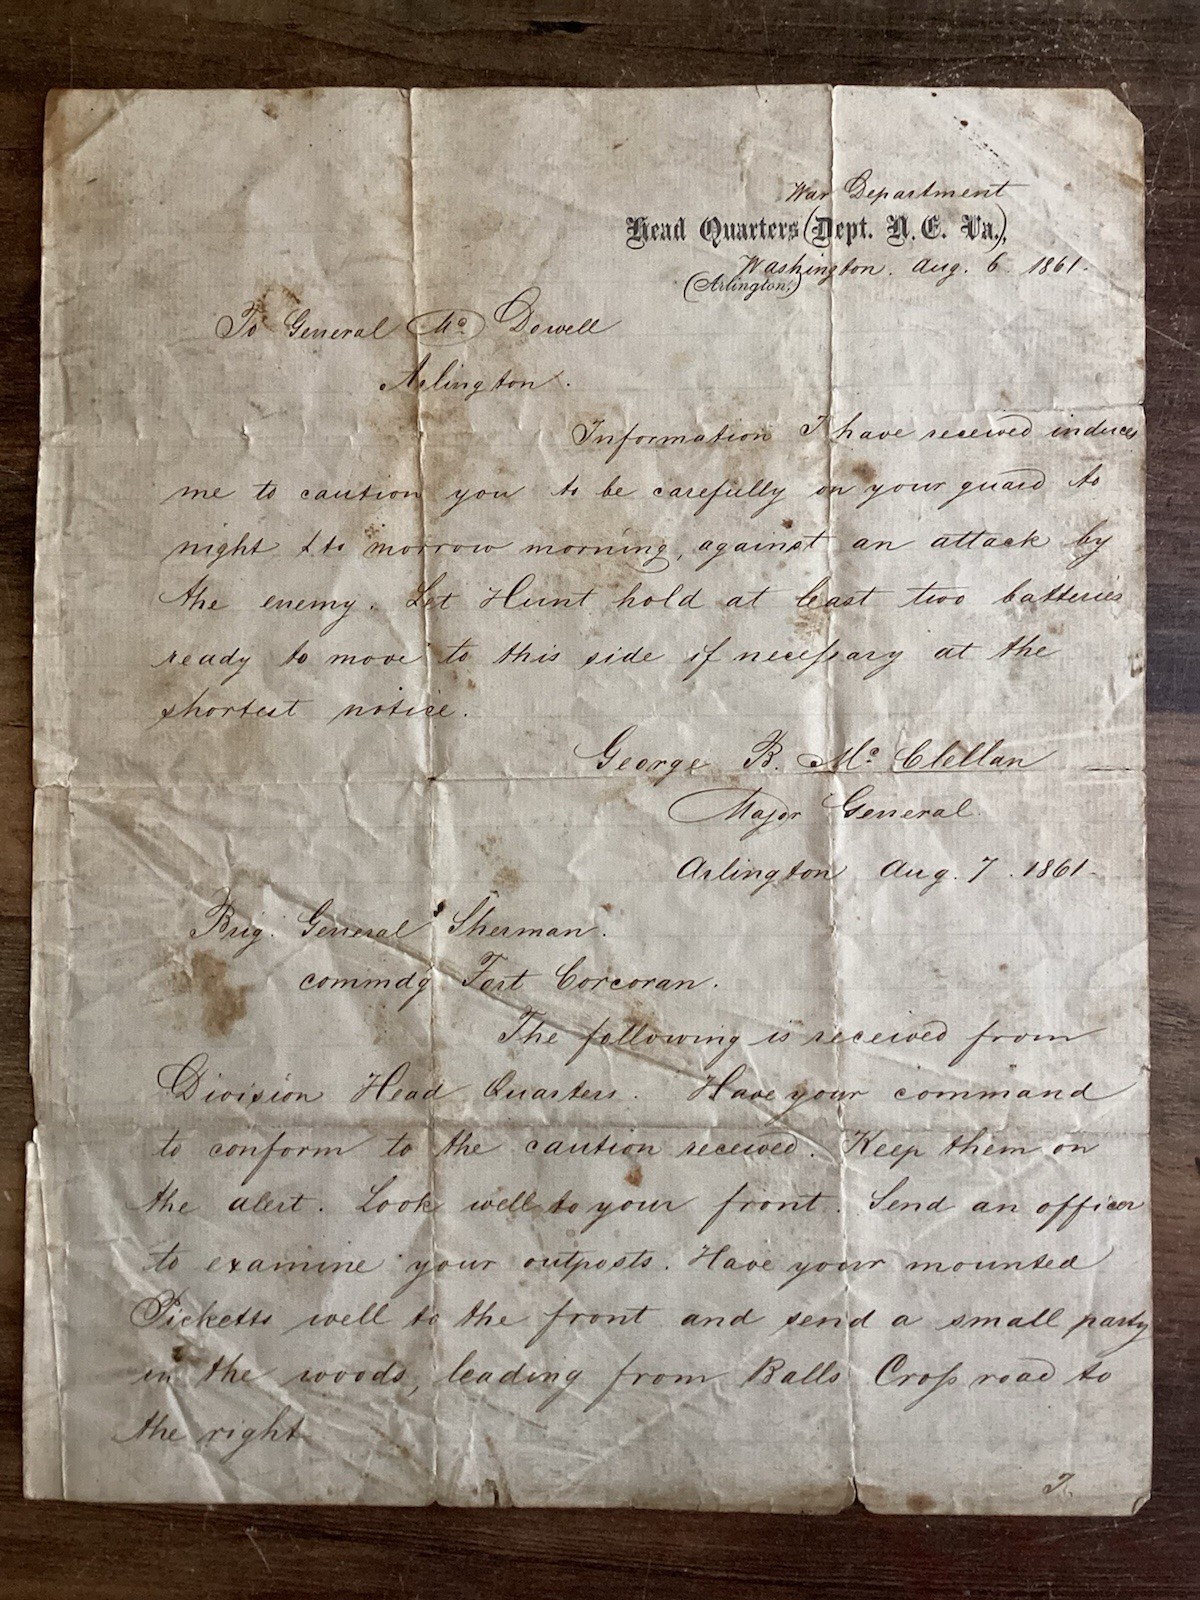 War Department
Head Quarters (Dept. N. E. Va.),
Washington. Aug. 6 1861.
(Arlington,)
To General Mc Dowell
Arlington.
Information I have received induces
me to caution you to be carefully on your guard to
night & to morrow morning, against an attack by
the enemy. Let Hunt hold at least two batteries
ready to move to this side if necessary at the
shortest notice.
George B. Mc Clellan
Major General
Arlington Aug. 7. 1861.
Brig. General Sherman.
commdg Fort Corcoran.
The following is received from
Division Head Quarters. Have your command
to conform to the caution received. Keep them on
the alert. Look well to your front. Send an officer
to examine your outposts. Have your mounted
Picketts well to the front and send a small party
in the woods, leading from Balls Cross road to
the right